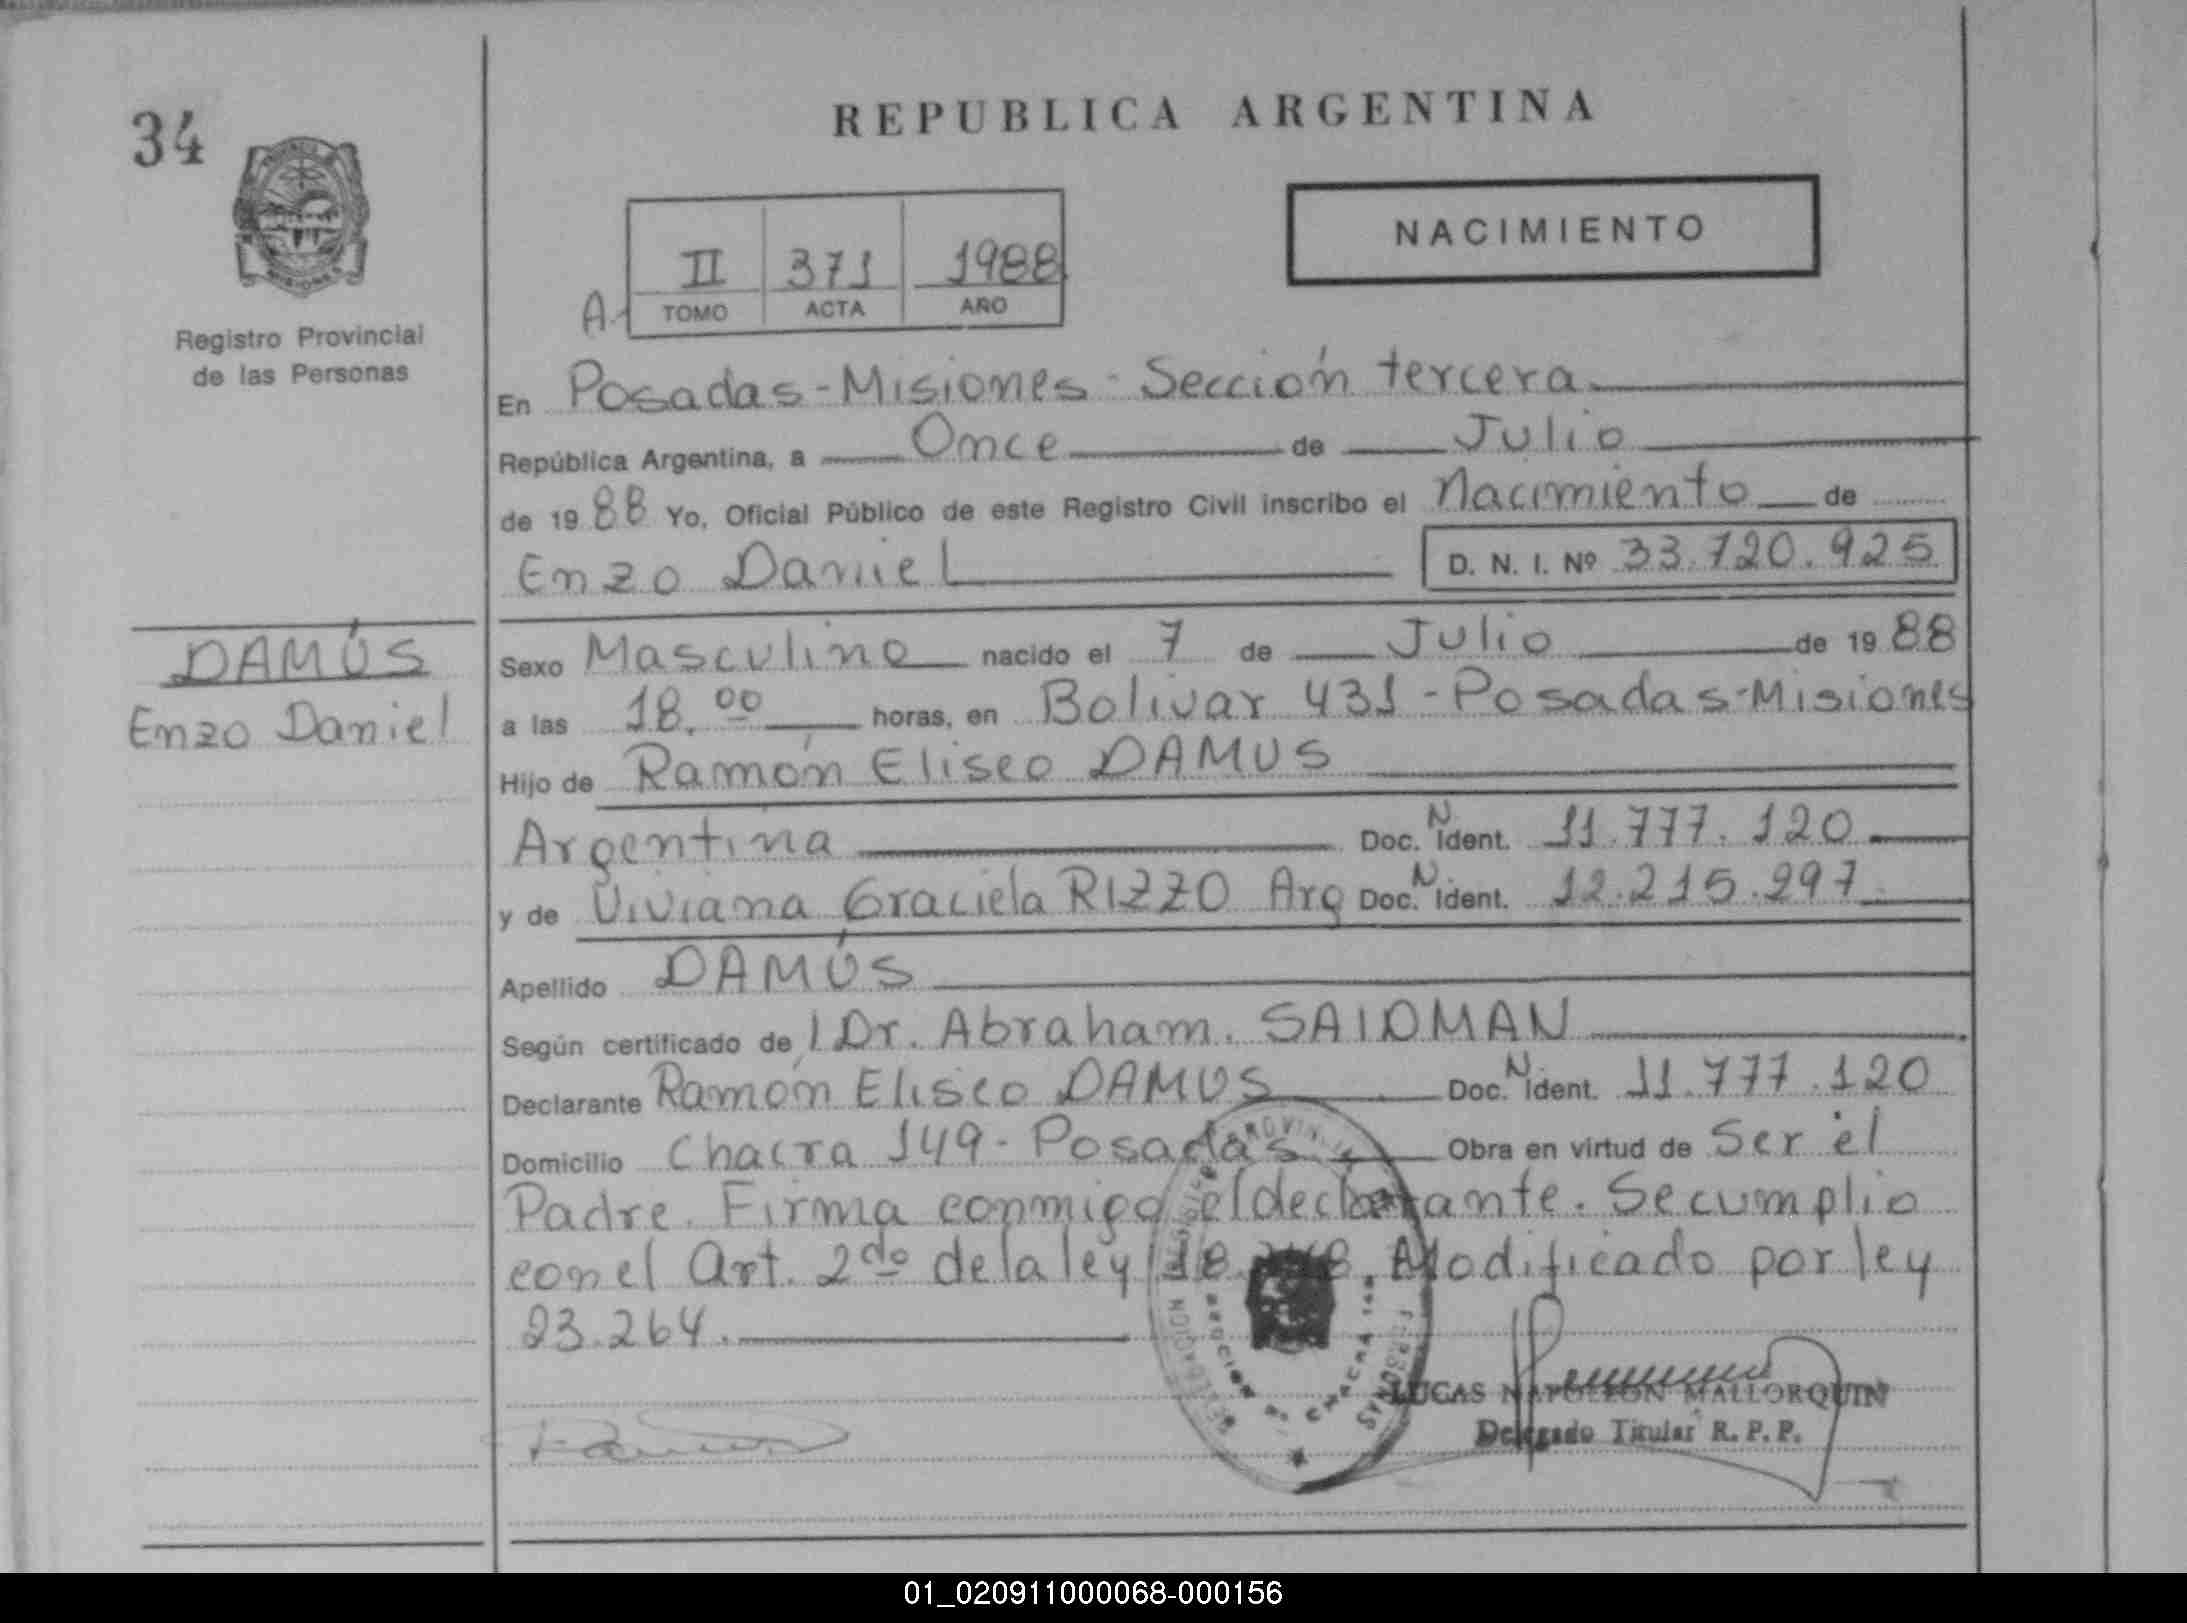 34
REPUBLICA ARGENTINA
NACIMIENTO
II 371 1988
A. TOMO ACTA AÑO
Registro Provincial
de las Personas
En Posadas-Misiones-Sección tercera
República Argentina, a Once de Julio
de 1988 Yo, Oficial Público de este Registro Civil inscribo el Nacimiento de
Enzo Daniel D. N. I. Nº 33.720.925
DAMÚS
Enzo Daniel
Sexo Masculino nacido el 7 de Julio de 1988
a las 18.00 horas, en Bolivar 431-Posadas-Misiones
Hijo de Ramón Eliseo DAMUS
Argentina Doc. N Ident. 11.777.120
y de Viviana Graciela RIZZO Arg Doc. N Ident. 12.215.297
Apellido DAMÚS
Según certificado de l Dr. Abraham. SAIDMAN
Declarante Ramón Eliseo DAMUS Doc. N Ident. 11.777.120
Domicilio Chacra 149-Posadas Obra en virtud de Ser el
Padre. Firma conmigo el declarante. Se cumplio
con el Art. 2do de la ley Modificado por ley
23.264.
LUCAS NAPOLEON MALLORQUIN
Delegado Titular R. P. P.
01_020911000068-000156